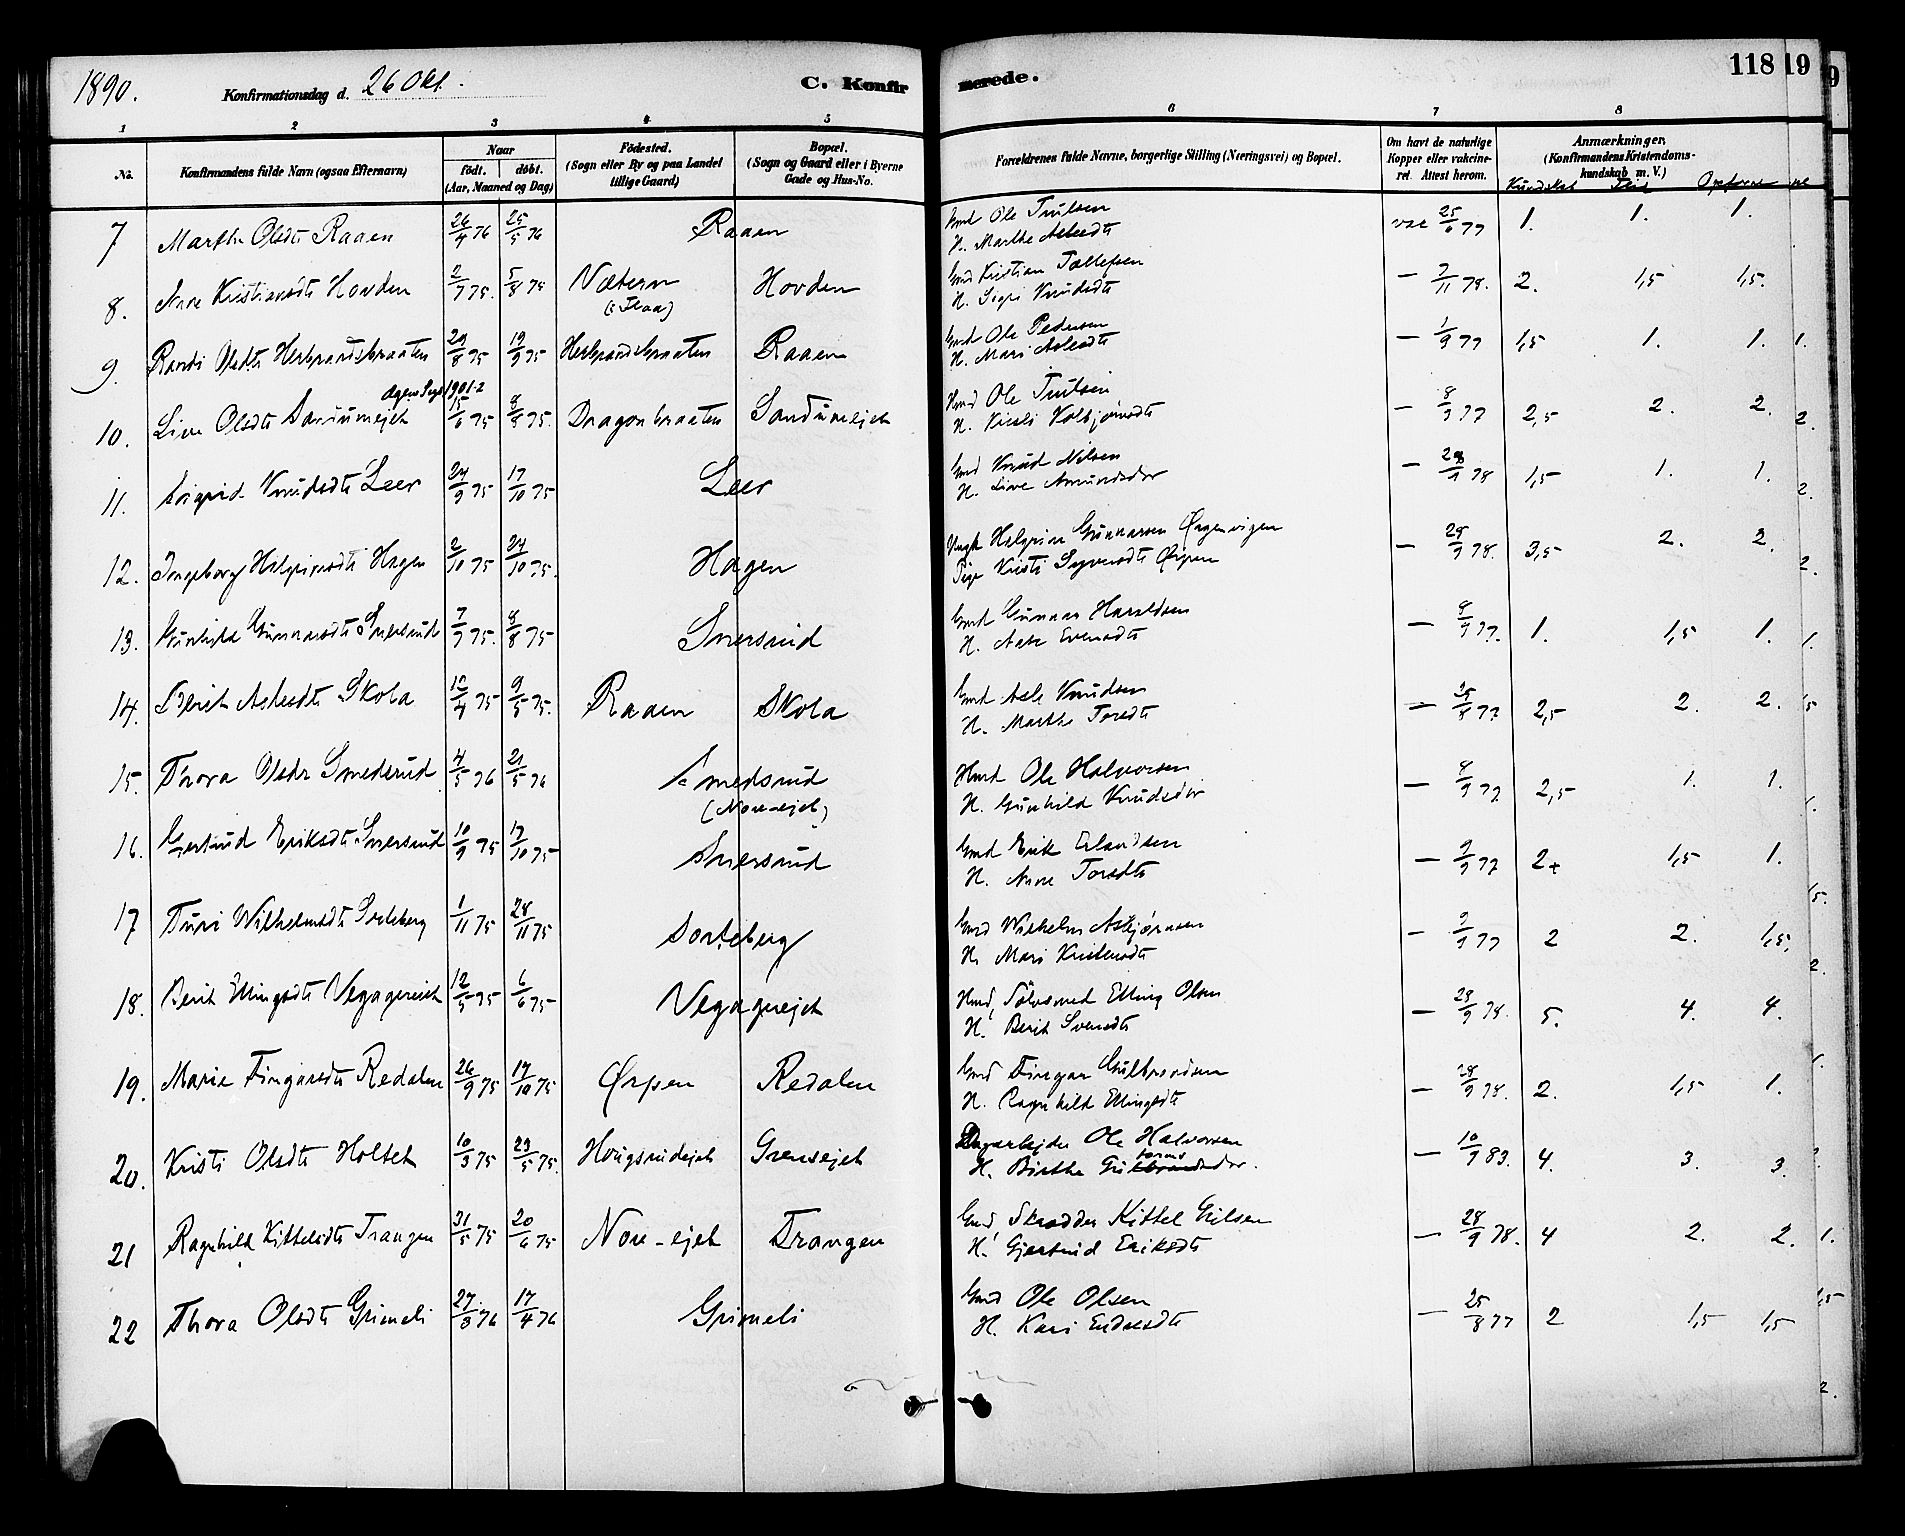 1890.
Konfirmationsdag d. 26 Okt.
C. Konfirmerede.
118 19 9
1 2 3 4 5 6 7 8
No.
Konfirmandens fulde Navn (ogsaa Efternavn)
Naar
födt. döbt.
(Aar, Maaned og Dag)
Födested.
(Sogn eller By og paa Landet
tillige Gaard)
Bopæl.
(Sogn og Gaard eller i Byerne
Gade og Hus-No.
Forældrenes fulde Navne, borgerlige Stilling (Næringsvei) og Bopæl.
Om havt de naturlige
Kopper eller vakcine-
ret. Attest herom.
Anmærkninger.
(Konfirmandens Kristendoms-
kundskab m. V.)
Kundskab Flid
7 Marthe Olsdtr Raaen 26/4 76 25/5 76 Raaen
Gmd Ole Trulsen
H. Marthe Aslesdtr
vac 25/6 77 1. 1. 1.
8. Anne Kristiansdtr Hovden 2/7 75. 5/8 75 Næteren Hovden
(i Flaa)
Gmd Kristian Tollefsen
H. Sigri Knudsdtr
— 7/11 78. 2. 1,5 1,5.
9. Randi Olsdtr Herbrandsbraaten 29/8 75 19/9 75 Herbrandsbraaten Raaen
Gmd Ole Pedersen
H. Mari Aslesdtr
— 1/9 77 1,5 1. 1.
10. Live Olsdtr Sandumejet 15/6 75 8/8 75. Dragonbraaten Sandumejet
Hmd Ole Trulsen
H. Kirsti Kolbjørnsdtr
— 8/9 77 2,5 2. 2.
11. Sigrid Knudsdtr Leer 24/9 75 17/10 75 Leer
Gmd Knud Nilsen
H. Live Amundsdtr
— 28/9 78 1,5 1. 1.
12. Ingeborg Helgesdtr Hagen 2/10 75 24/10 75. Hagen
Pige Kristi Ørpen
— 28/9 78. 3,5 2. 2.
13. Gunhild Gunnarsdtr Snersrud 7/7 75. 8/8 75 Snersrud
Gmd Gunnar Haraldsen
H. Evensdtr
— 8/9 77. 1. 1,5 1.
14. Berit Aslesdtr Skola 12/4 75 9/5 75. Raaen Skola
Gmd Asle Knudsen
H. Marthe Toresdtr
— 25/8 77 2,5 2. 2.
15. Thora Olsdtr Smedsrud 4/5 76 21/5 76 Smedsrud
(Nore-ejet)
Hmd Ole Halvorsen
H. Gunhild Knudsdtr
— 8/9 77 2,5 1. 1.
16. Gertrud Eriksdtr Snersrud 10/9 75 17/10 75 Snersrud
Gmd Erik Erlandsen
H. Anne Toresdtr
— 9/9 77 2+ 1,5 1.
17 Turi Wilhelmsdtr Sorteberg 1/11 75 28/11 75 Sorteberg
Gmd Wilhelm Asbjørnsen
H. Mari Kristensdtr
— 9/9 77 2 2. 1,5.
18. Berit Ellingsdtr Vegagerejet 12/5 75 6/6 75 Vegagerejet
Hmd, Sølvsmed Elling Olsen
H. Berit Svensdtr
— 28/9 78. 5. 4. 4.
19. Marie Fingarsdtr Redalen 26/9 75 17/10 75 Ørpen Redalen
Gmd Fingar Gulbrandsen
H. Ragnhild Ellingsdtr
— 28/9 78. 2. 1,5 1.
20. Kristi Olsdtr Holtet 10/3 75 23/5 75. Hougsrudejet Grensejet
Dagarbejder Ole Halvorsen
H. Birthe
— 10/9 83. 4. 3. 3.
21 Ragnhild Kittelsdtr Trangen 31/5 75 20/6 75 Nore-ejet Trangen
Gmd, Skrædder Kittel Eilsen
H. Gjertrud Eriksdtr
— 28/9 78. 4 2. 2.
22 Thora Olsdtr Grimeli 27/3 76 17/4 76 Grimeli
Gmd Ole Olsen
H. Kari Endresdtr
— 25/8 77 2 1,5 1,5